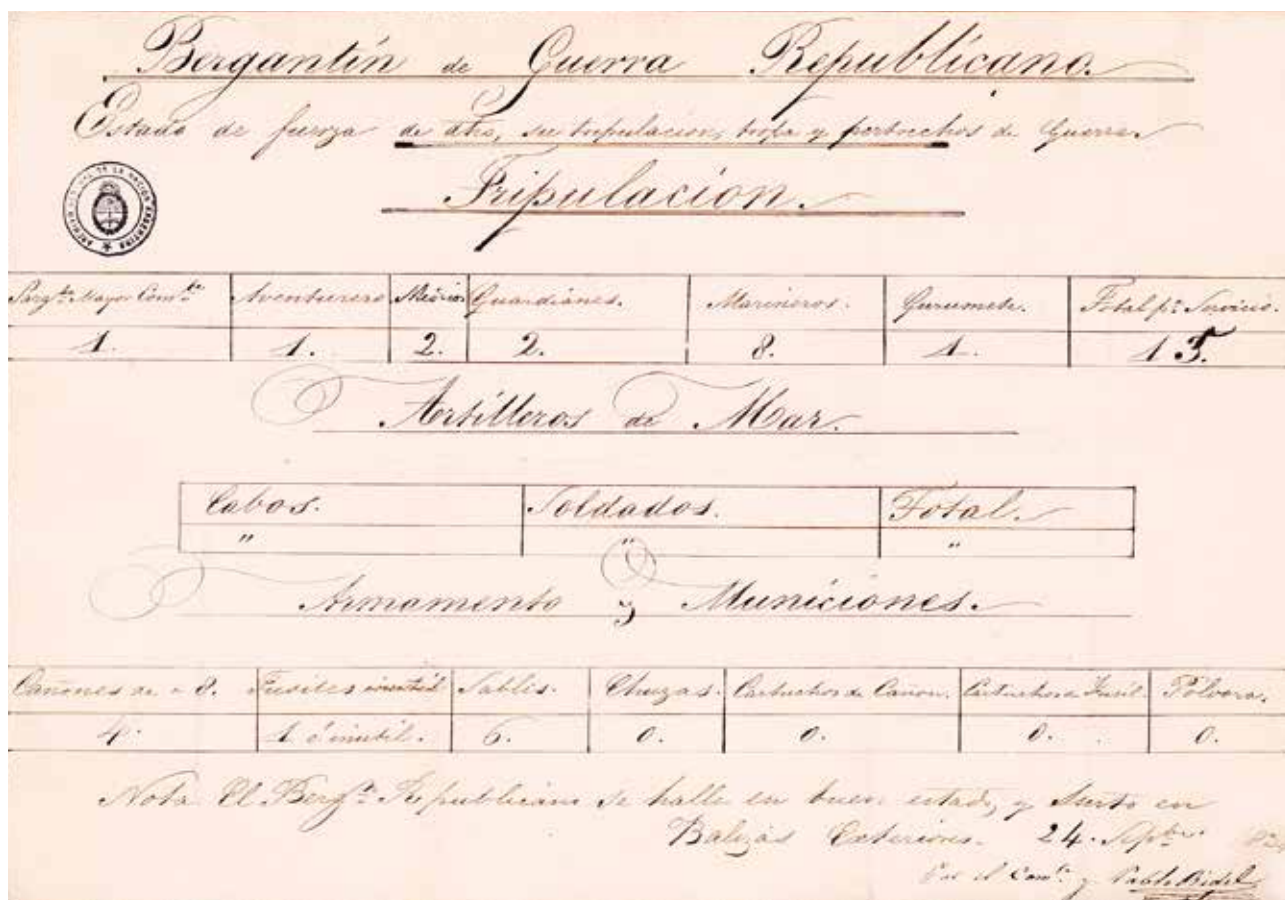 Bergantín de Guerra Republicano.
Estado de fuerza de dho, su tripulacion, tropa y pertrechos de Guerra
Tripulacion.
ARCHIVO GENERAL DE LA NACION ARGENTINA
Sarg.to Mayor Com.te Aventurero Guardianes. Marineros. Gurumete. Total p.a Servicio.
1. 1. 2. 2. 8. 1. 15.
Artilleros de Mar.
Cabos. Soldados. Total.
" " "
Armamento y Municiones.
Cañones de a 8. Fusiles inutil Sables. Chuzas. Cartuchos de Cañon. Cartuchos de Fusil Pólvora.
4. 1 é inutil. 6. 0. 0. 0. 0.
Nota El Berg.n Republicano se halla en buen estado, y Surto en
Balizas Exteriores. 24. Sptbre
Por el Com.te y Pablo Bidel